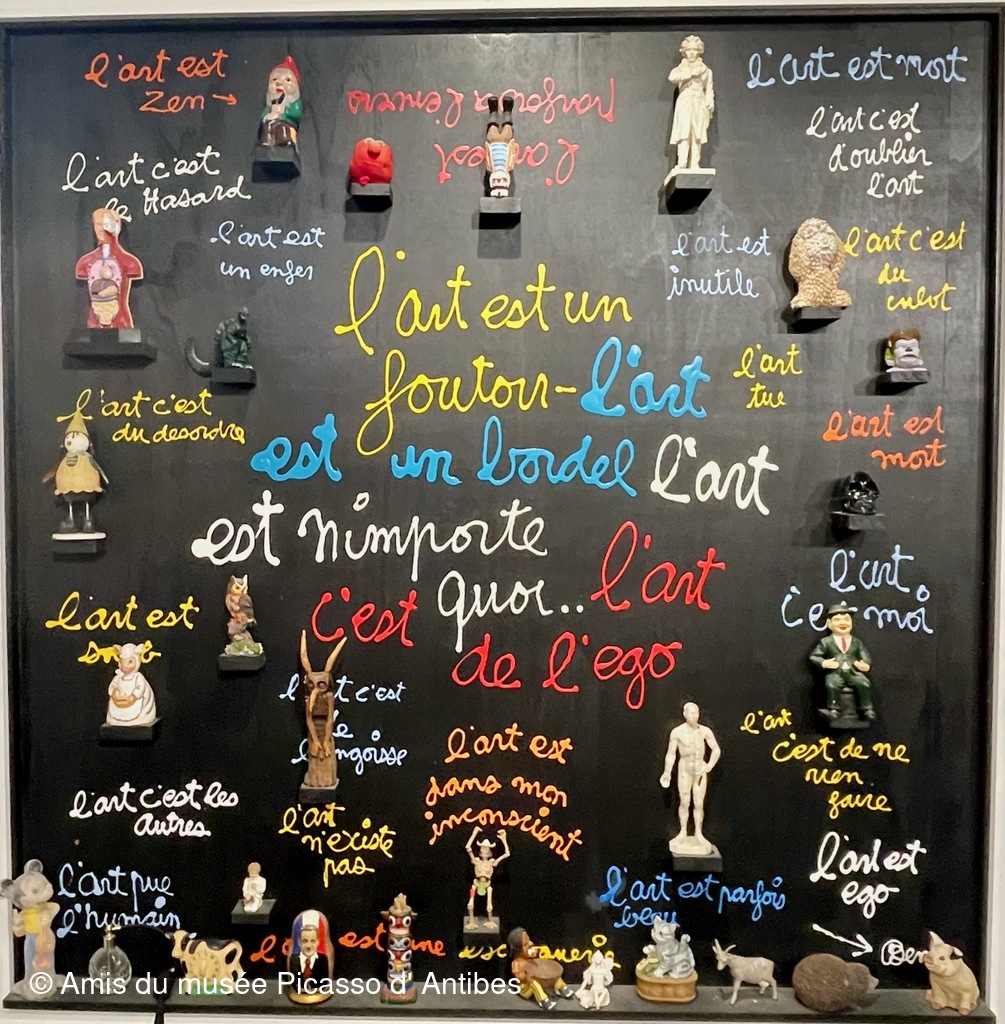 l'art est
zen →
l'art est
parfois a l'envers
l'art est mort
l'art c'est
d'oublier
l'art
l'art c'est
le Hasard
l'art est
un enfer
l'art est
inutile
l'art c'est
du
culot
l'art est un
foutoir- l'art
est un bordel l'art
est n'importe
quoi.. l'art
c'est
de l'ego
l'art
tue
l'art c'est
du desordre
l'art est
mort
l'art
c'est moi
l'art est
l'art c'est
l'angoisse
l'art est
dans mon
inconscient
l'art
c'est de ne
rien
faire
l'art c'est les
autres
l'art
n'existe
pas
l'art est
ego
l'art pue
l'humain
l'art est parfois
beau
est une
Ben
© Amis du musée Picasso d' Antibes